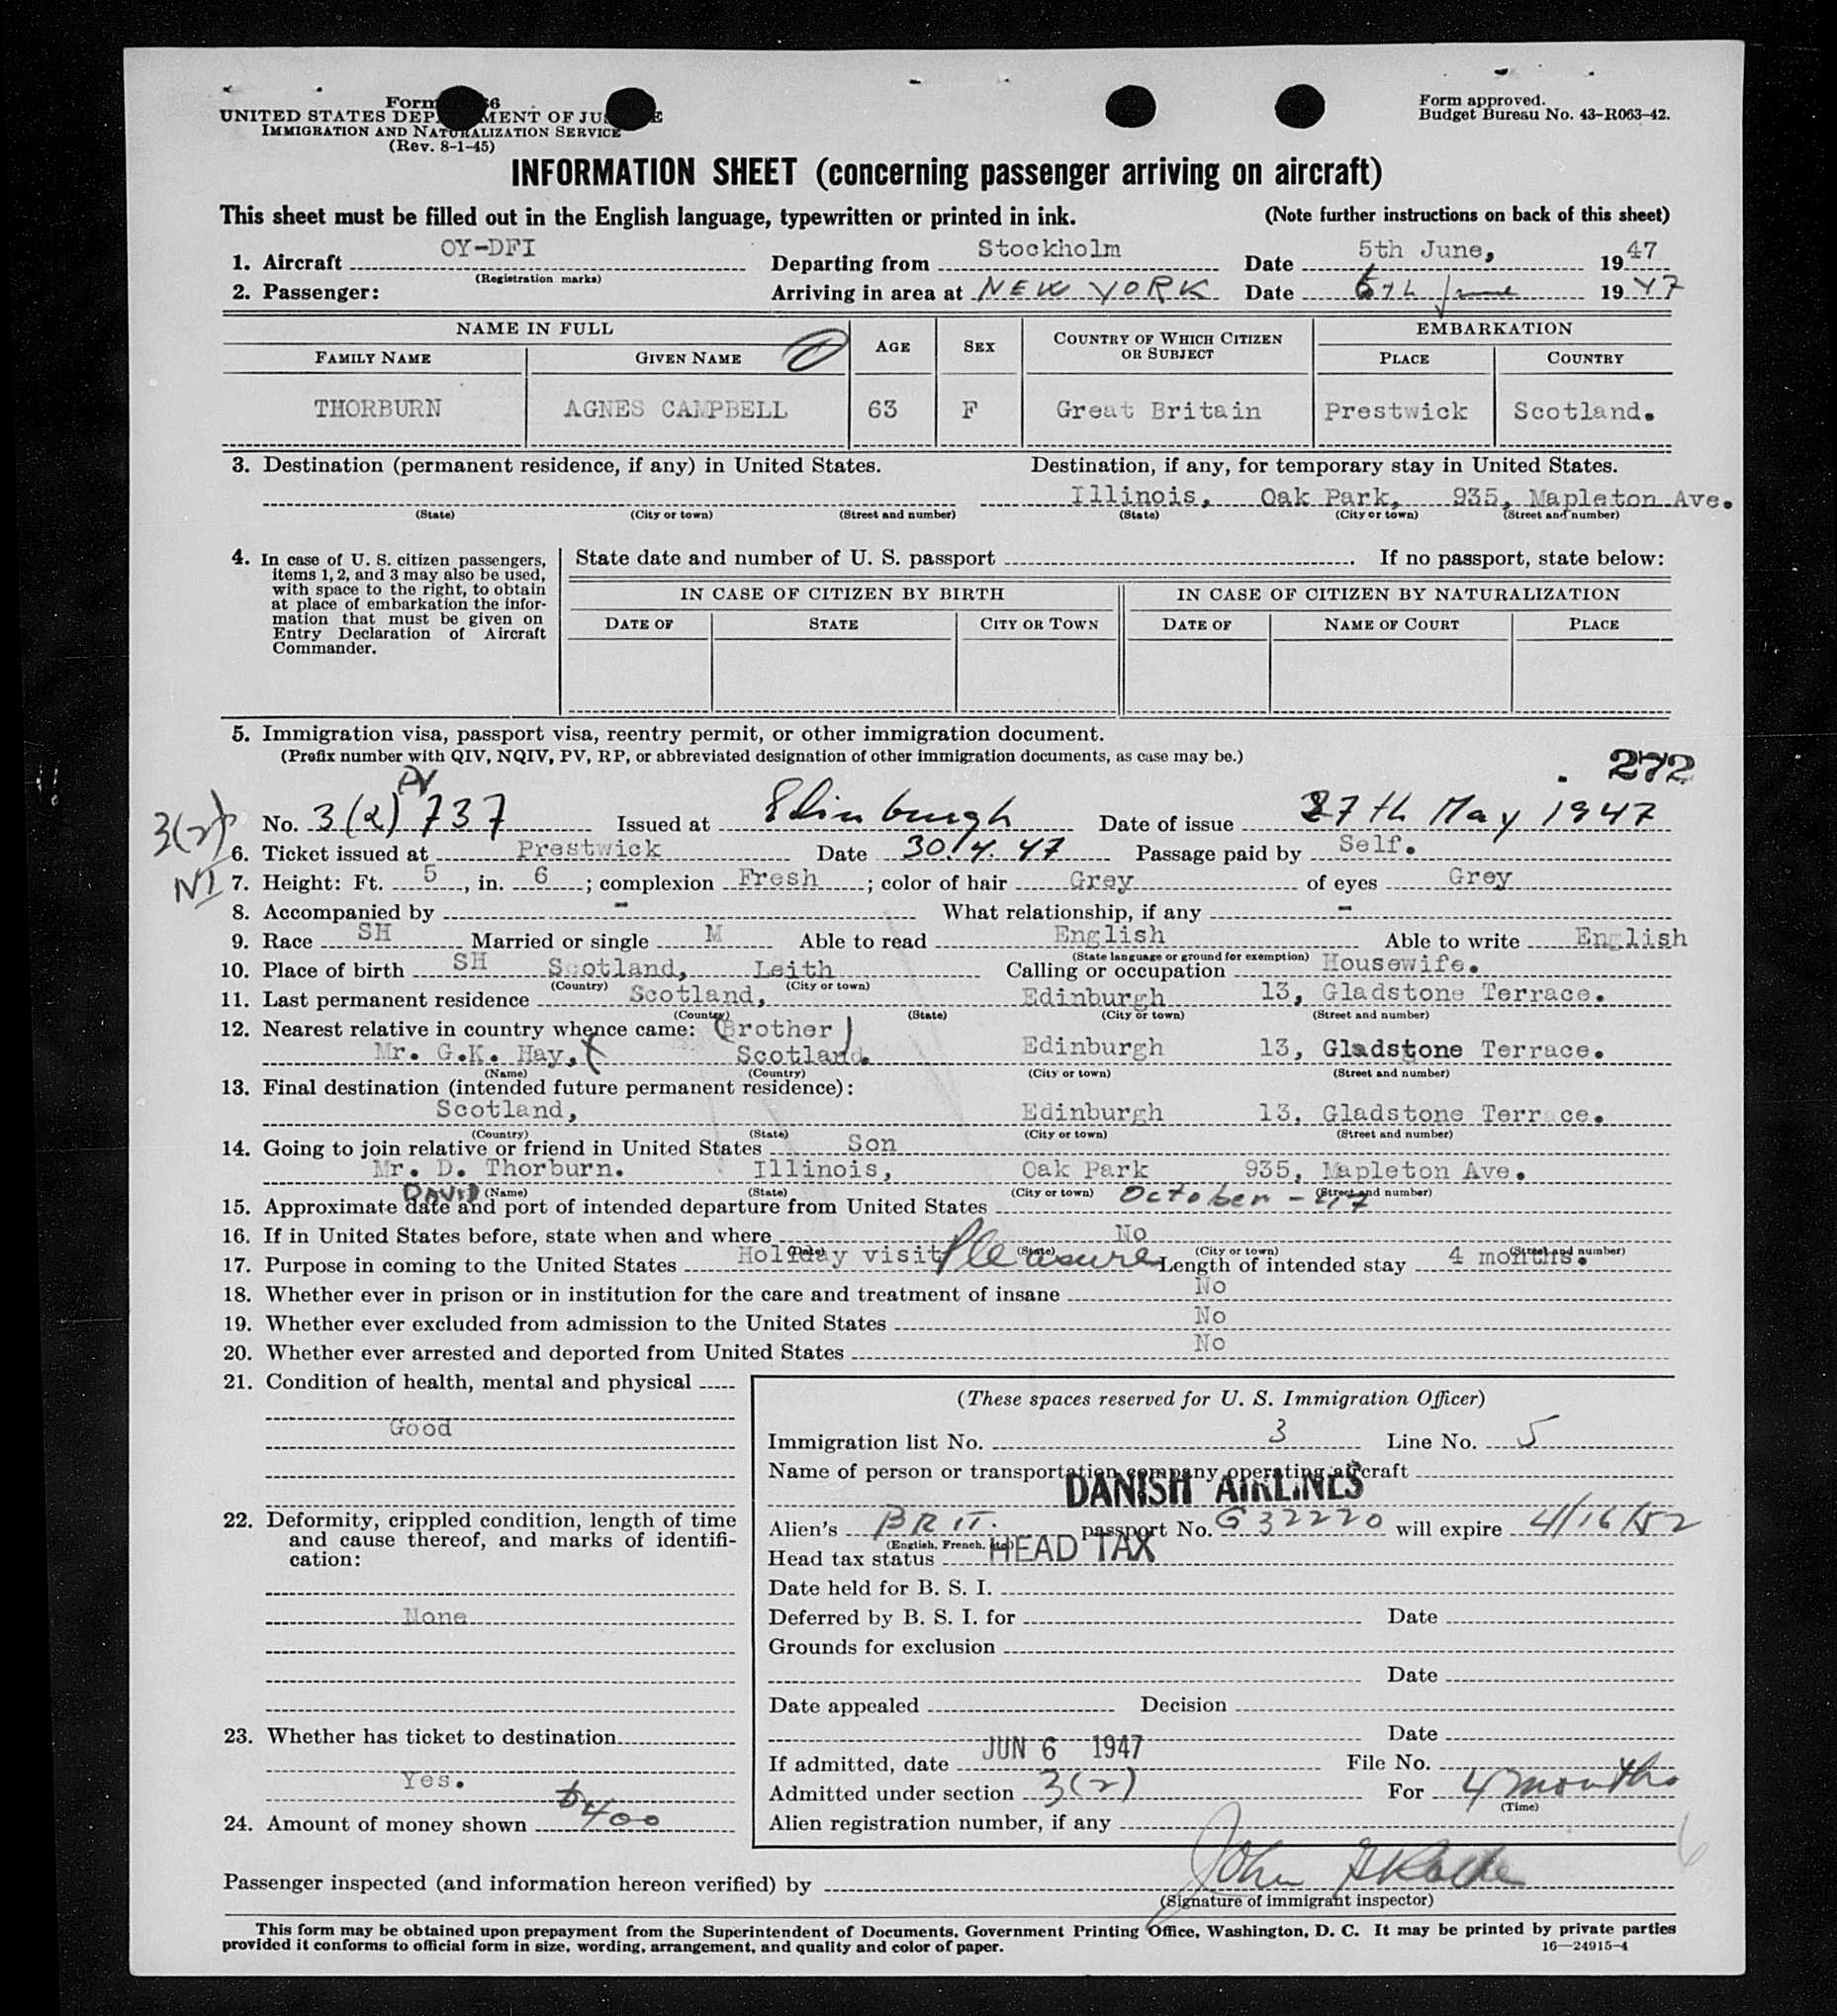 Form 66
UNITED STATES DEP MENT OF JUS E
IMMIGRATION AND NATURALIZATION SERVICE
(Rev. 8-1-45)
Form approved.
Budget Bureau No. 43-R063-42.
INFORMATION SHEET (concerning passenger arriving on aircraft)
This sheet must be filled out in the English language, typewritten or printed in ink. (Note further instructions on back of this sheet)
1. Aircraft OY-DFI Departing from Stockholm Date 5th June, 1947
(Registration marks)
2. Passenger: Arriving in area at NEW YORK Date 6th June 1947
NAME IN FULL EMBARKATION
FAMILY NAME GIVEN NAME AGE SEX COUNTRY OF WHICH CITIZEN OR SUBJECT PLACE COUNTRY
THORBURN AGNES CAMPBELL 63 F Great Britain Prestwick Scotland.
3. Destination (permanent residence, if any) in United States. Destination, if any, for temporary stay in United States.
Illinois, Oak Park, 935, Mapleton Ave.
(State) (City or town) (Street and number) (State) (City or town) (Street and number)
4. In case of U. S. citizen passengers, items 1, 2, and 3 may also be used, with space to the right, to obtain at place of embarkation the information that must be given on Entry Declaration of Aircraft Commander.
State date and number of U. S. passport . If no passport, state below:
IN CASE OF CITIZEN BY BIRTH IN CASE OF CITIZEN BY NATURALIZATION
DATE OF STATE CITY OR TOWN DATE OF NAME OF COURT PLACE
5. Immigration visa, passport visa, reentry permit, or other immigration document.
(Prefix number with QIV, NQIV, PV, RP, or abbreviated designation of other immigration documents, as case may be.)
272
PV
3(2)
No. 3(2) 737 Issued at Edinburgh Date of issue 27th May 1947
6. Ticket issued at Prestwick Date 30.4.47 Passage paid by Self.
NI
7. Height: Ft. 5, in. 6; complexion Fresh; color of hair Grey of eyes Grey
8. Accompanied by - What relationship, if any -
9. Race SH Married or single M Able to read English Able to write English
(State language or ground for exemption)
10. Place of birth SH Scotland, Leith Calling or occupation Housewife.
(Country) (City or town)
11. Last permanent residence Scotland, Edinburgh 13, Gladstone Terrace.
(Country) (State) (City or town) (Street and number)
12. Nearest relative in country whence came: (Brother)
Mr. G.K. Hay, Scotland. Edinburgh 13, Gladstone Terrace.
(Name) (Country) (City or town) (Street and number)
13. Final destination (intended future permanent residence):
Scotland, Edinburgh 13, Gladstone Terrace.
(Country) (State) (City or town) (Street and number)
14. Going to join relative or friend in United States Son
Mr. D. Thorburn. Illinois, Oak Park 935, Mapleton Ave.
DAVID (Name) (State) (City or town) (Street and number)
15. Approximate date and port of intended departure from United States October - 47
16. If in United States before, state when and where No
(Date) (State) (City or town) (Street and number)
17. Purpose in coming to the United States Holiday visit Pleasure Length of intended stay 4 months.
18. Whether ever in prison or in institution for the care and treatment of insane No
19. Whether ever excluded from admission to the United States No
20. Whether ever arrested and deported from United States No
21. Condition of health, mental and physical
Good
22. Deformity, crippled condition, length of time and cause thereof, and marks of identification:
None
23. Whether has ticket to destination
Yes.
24. Amount of money shown $400
(These spaces reserved for U. S. Immigration Officer)
Immigration list No. 3 Line No. 5
Name of person or transportation company operating aircraft
DANISH AIRLINES
Alien's BRIT. passport No. G 32220 will expire 4/16/52
(English, French, etc.)
Head tax status HEAD TAX
Date held for B. S. I.
Deferred by B. S. I. for Date
Grounds for exclusion
Date
Date appealed Decision
Date
If admitted, date JUN 6 1947 File No.
Admitted under section 3(2) For 4 months
(Time)
Alien registration number, if any
6
Passenger inspected (and information hereon verified) by John
(Signature of immigrant inspector)
This form may be obtained upon prepayment from the Superintendent of Documents, Government Printing Office, Washington, D. C. It may be printed by private parties
provided it conforms to official form in size, wording, arrangement, and quality and color of paper. 16—24915-4